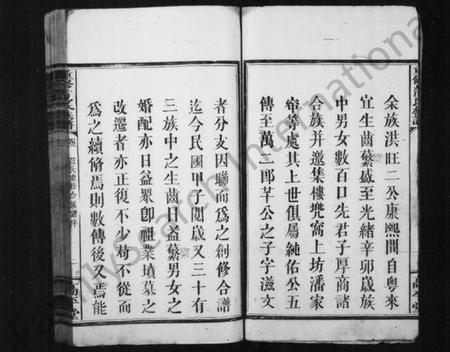 余族洪旺二公康熙間自粵來
宜生齒繁盛至光緒辛卯歲族
中男女數百口先君子厚商諸
合族并邀集樓凳窩上坊潘家
等處其上世俱屬純佑公五
傳至萬二郎芊公之子字滋文
者分支因聯而爲之創修合譜
迄今民國甲子閱歲又三十有
三族中之生齒日益繁男女之
婚配亦日益衆卽祖業墳墓之
改遷者亦正復不少茍不從而
爲之續脩焉則數傳後又焉能